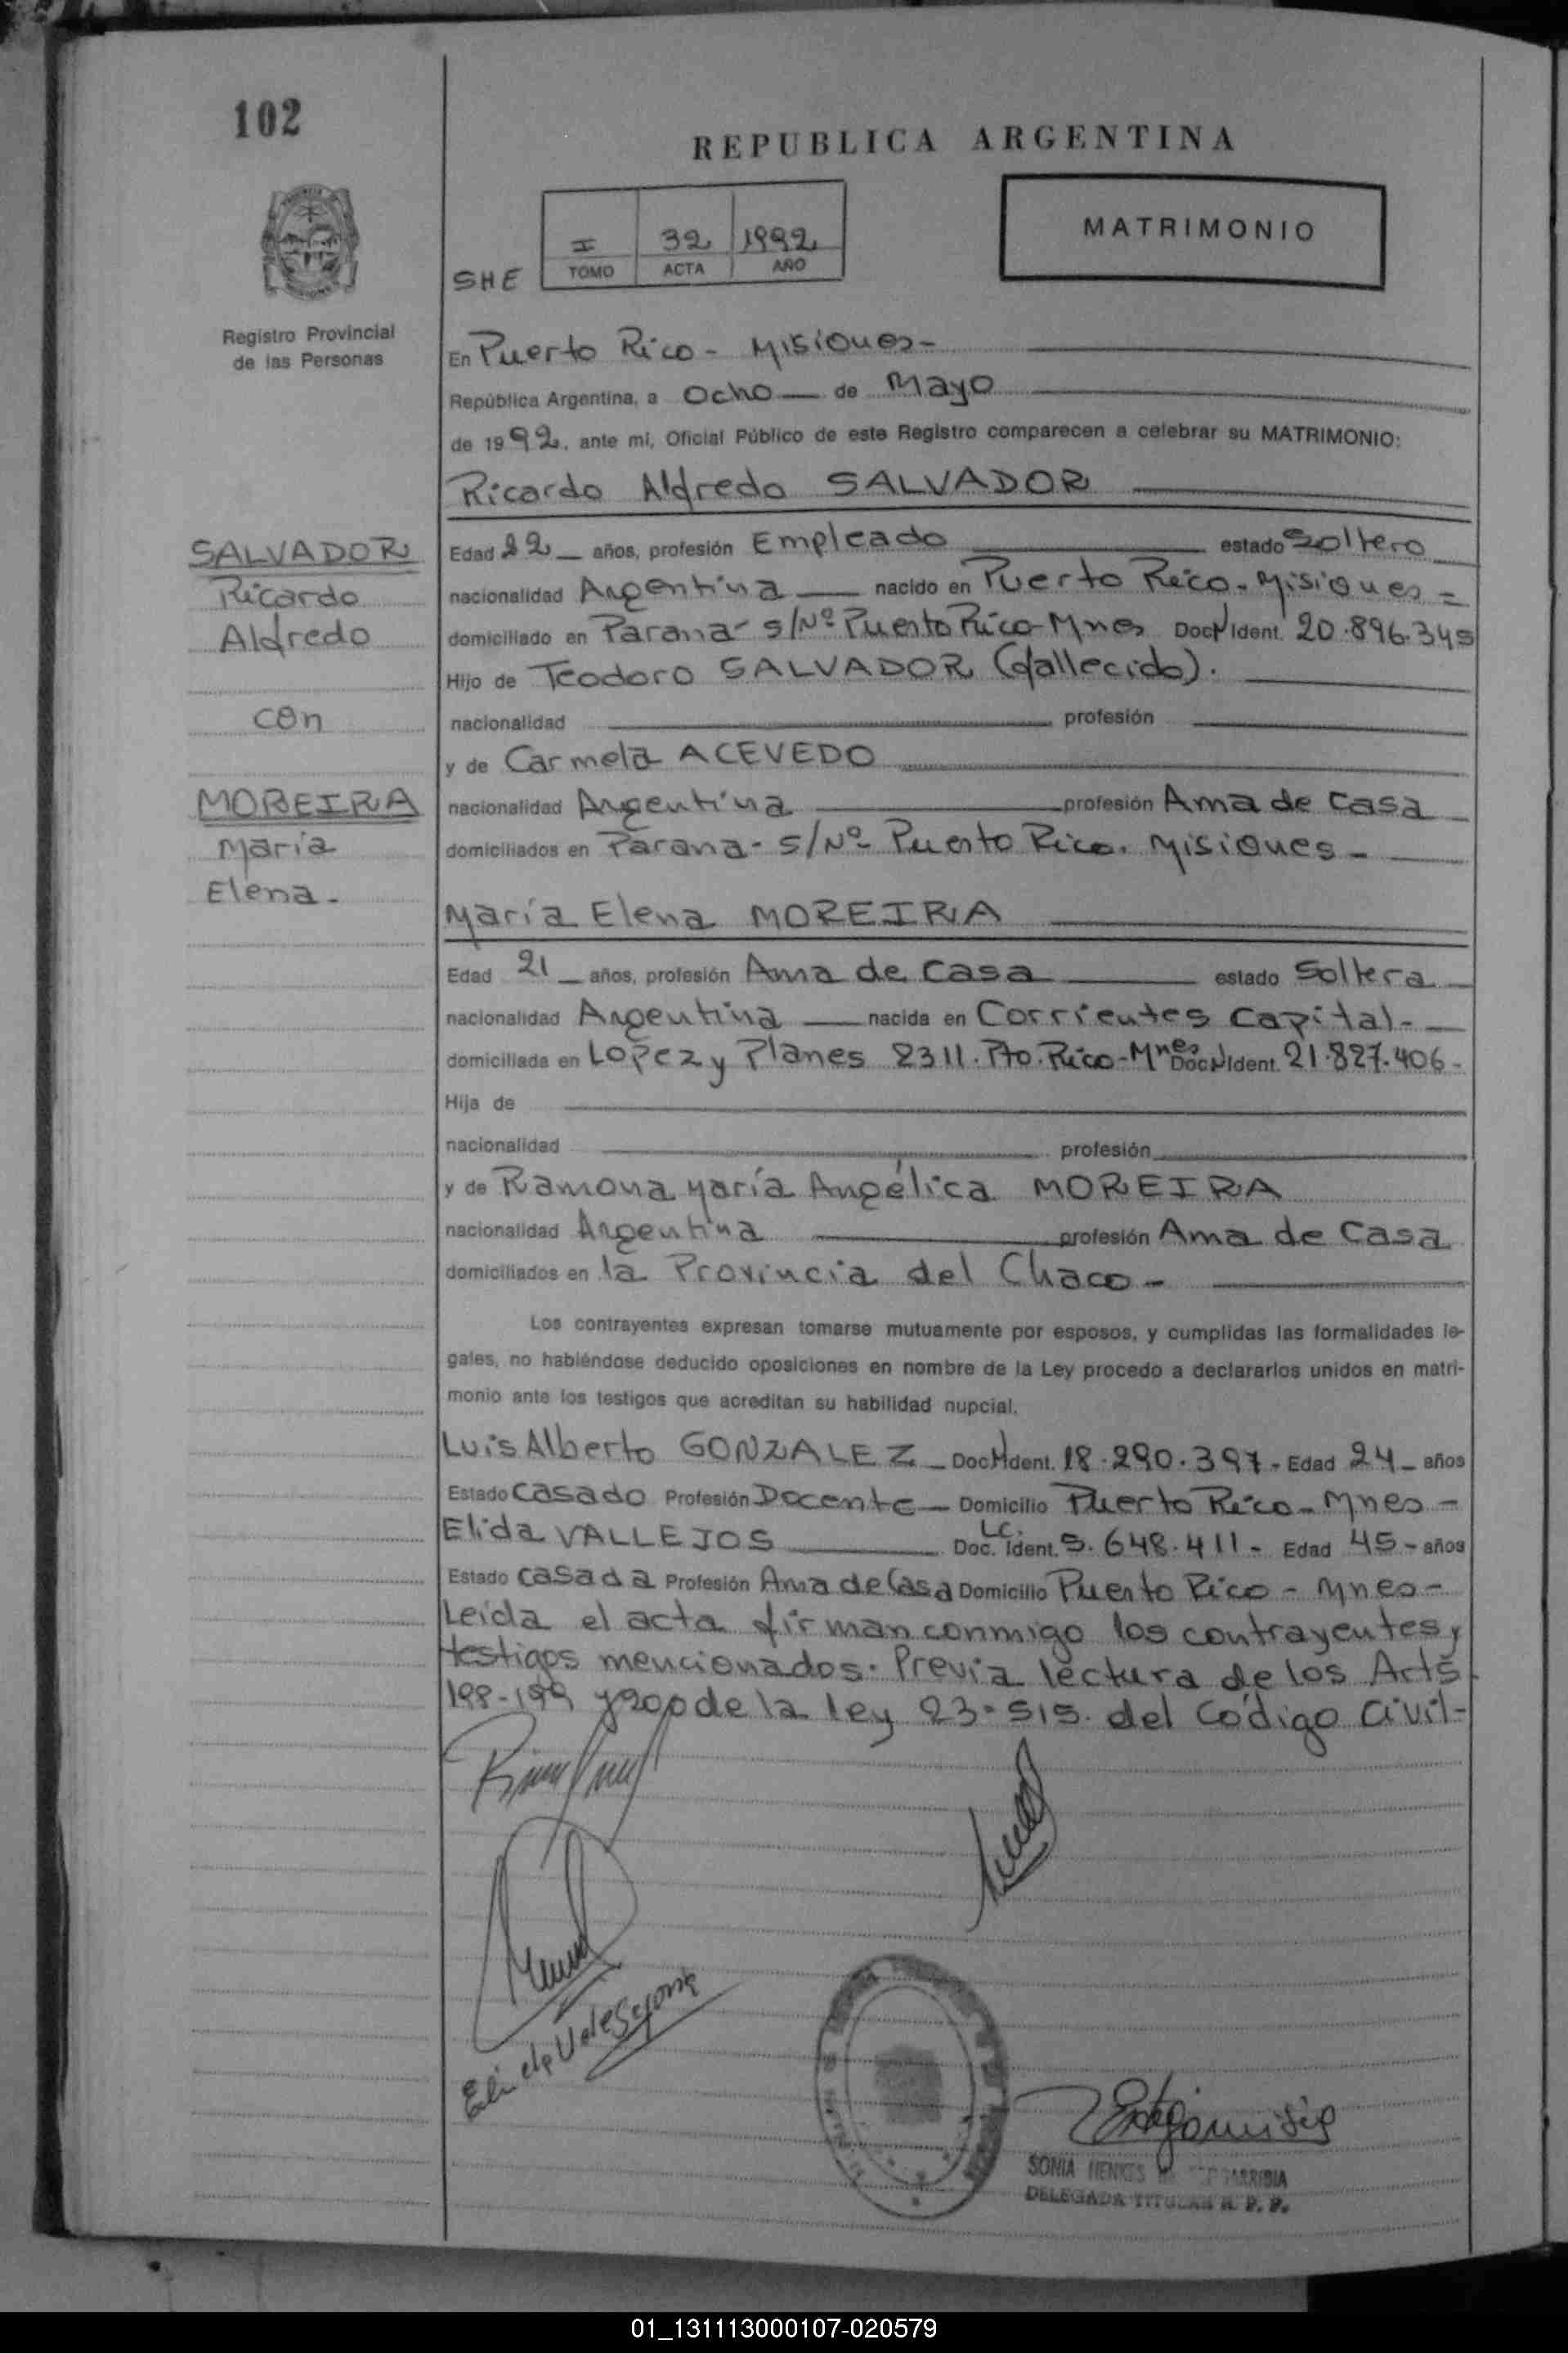 102
REPUBLICA ARGENTINA
MATRIMONIO
I 32 1992
TOMO ACTA AÑO
SHE
Registro Provincial
de las Personas
En Puerto Rico - Misiones -
República Argentina, a Ocho de Mayo
de 1992, ante mí, Oficial Público de este Registro comparecen a celebrar su MATRIMONIO:
Ricardo Alfredo SALVADOR
SALVADOR
Ricardo
Alfredo
con
MOREIRA
María
Elena -
Edad 22 años, profesión Empleado estado Soltero
nacionalidad Argentina nacido en Puerto Rico - Misiones =
domiciliado en Parana - s/Nº Puerto Rico - Mnes Doc N Ident. 20.896.345
Hijo de Teodoro SALVADOR (fallecido).
nacionalidad profesión
y de Carmela ACEVEDO
nacionalidad Argentina profesión Ama de Casa
domiciliados en Parana - S/Nº Puerto Rico. Misiones -
María Elena MOREIRA
Edad 21 años, profesión Ama de Casa estado Soltera
nacionalidad Argentina nacida en Corrientes Capital -
domiciliada en Lopez y Planes 2311. Pto. Rico - Mnes Doc N Ident. 21.827.406 -
Hija de
nacionalidad profesión
y de Ramona María Angélica MOREIRA
nacionalidad Argentina profesión Ama de Casa
domiciliados en la Provincia del Chaco -
Los contrayentes expresan tomarse mutuamente por esposos, y cumplidas las formalidades le-
gales, no habiéndose deducido oposiciones en nombre de la Ley procedo a declararlos unidos en matri-
monio ante los testigos que acreditan su habilidad nupcial.
Luis Alberto GONZALEZ - Doc N Ident. 18.290.397 - Edad 24 - años
Estado Casado Profesión Docente - Domicilio Puerto Rico - Mnes -
Elida VALLEJOS Doc. L.C. Ident. 5.648.411 - Edad 45 - años
Estado casada Profesión Ama de Casa Domicilio Puerto Rico - Mnes -
Leída el acta firman conmigo los contrayentes y
testigos mencionados. Previa lectura de los Arts.
198-199 y 200 de la ley 23.515. del Código Civil -
SONIA HENKES
DELEGADA TITULAR R. P. P.
01_131113000107-020579